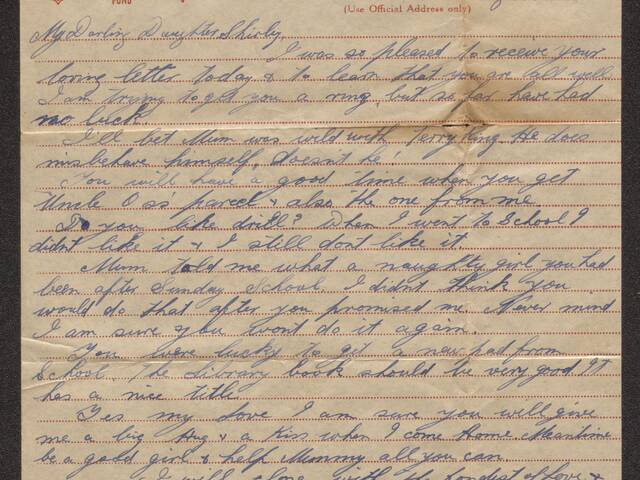 FUND
(Use Official Address only)
My Darling Daughter Shirly,
I was so pleased to receive your
loving letter today & to learn that you are all well
I am trying to get you a ring, but so far have had
no luck.
I'll bet Mum was wild with Terry King. He does
misbehave himself, doesn't he!
You will have a good time when you get
Uncle Oss' parcel & also the one from me
Do you like drill? When I went to School I
didnt like it & I still dont like it
Mum told me what a naughty girl you had
been after Sunday School. I didnt think you
would do that after you promised me. Never mind
I am sure you wont do it again.
You were lucky to git a new pad from
School. The Library book should be very good It
has a nice title
Yes my love I am sure you will give
me a big Hug & a Kiss when I come Home. Meantime
be a good girl & help Mummy all you can.
I will close with the fondest of Love &